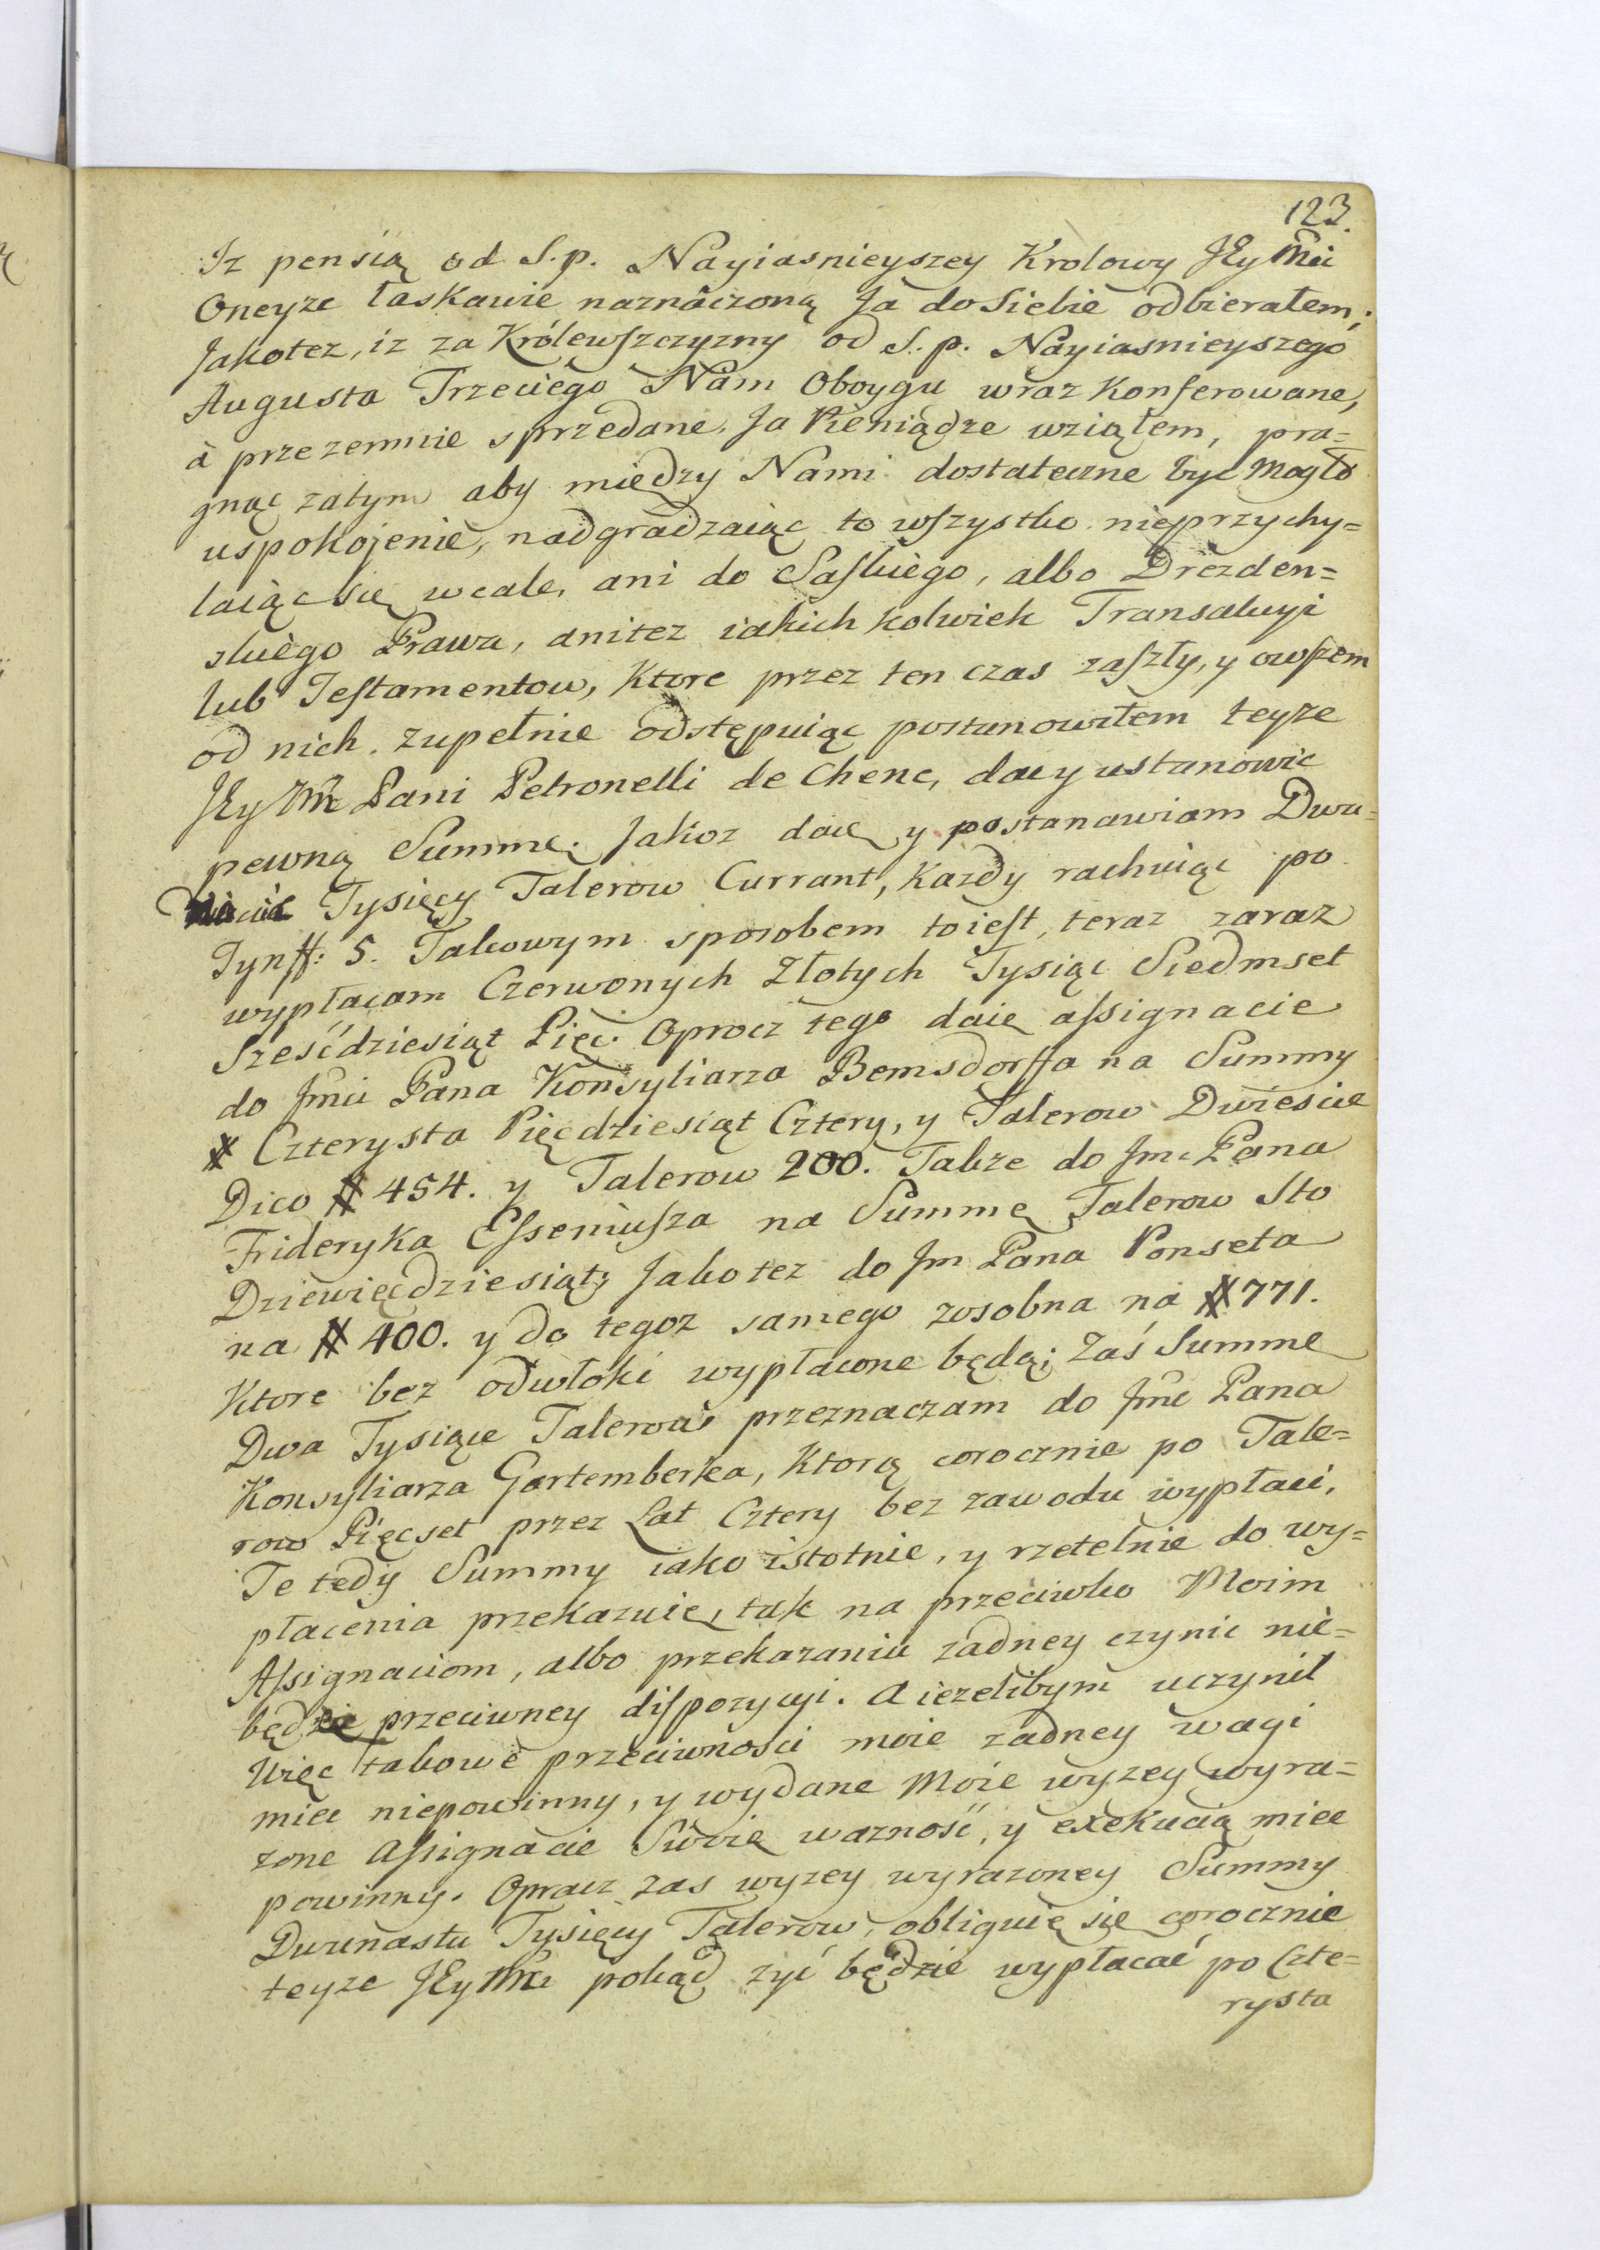 123.
Iz pensią od S.p. Nayiasnieyszey Krolowy JEy Mci
Oneyze łaskawie naznaczoną Ja do Siebie odbierałem;
Jakotez, iz za Królewszczyzny od S.p. Nayiasnieyszego
Augusta Trzeciego Nam Oboygu wraz Konferowane,
à przezemnie sprzedane, Ja Pieniądze wziąłem, pra=
gnąc zatym aby między Nami dostateczne być mogło
uspokojenie, nadgradzaiąc to wszystko nieprzychy=
laiąc się wcale, ani do Saskiego, albo Drezden=
skiego Prawa, anitez iakich kolwiek Transakcyi
lub Testamentow, Ktore przez ten czas zaszły, y owszem
od nich zupełnie odstępuiąc postanowiłem teyze
JEy Mci Pani Petronelli de Chene, dac y ustanowic
pewną Summę. Jakoz daię y postanawiam Dwa=
Tysięcy Talerow Currant, Kazdy rachuiąc po
Tynff: 5. Takowym sposobem toiest, teraz zaraz
wypłacam Czerwonych Złotych Tysiąc Siedmset
Sześćdziesiąt Pięc. Oprocz tego daię assignacie
do Jmci Pana Konsyliarza Bemsdorffa na Summy
# Czterysta Pięcdziesiąt Cztery, y Talerow Dwiescie
Dico # 454. y Talerow 200. Takze do Jmc Pana
Frideryka Esseniusza na Summę Talerow Sto
Dziewięcdziesiąt; Jako tez do Jm Pana Ponseta
na # 400. y do tegoz samego zosobna na # 771.
Ktore bez odwłoki wypłacone będą; Zaś Summę
Dwa Tysiące Talerow przeznaczam do Jmc Pana
Konsyliarza Gartemberka, Ktorą corocznie po Tale=
row Pięcset przez Lat Cztery bez zawodu wypłaci,
Te tedy Summy iako istotnie, y rzetelnie do wy=
płacenia przekazuię, tak na przeciwko Moim
Assignaciom, albo przekazaniu zadney czynic nie=
będzie przeciwney dispozycyi. A iezelibym uczynił
Więc takowe przeciwności moie zadney wagi
miec niepowinny, y wydane Moie wyzey wyra=
zone Assignacie Swoię waznośc, y exekucią miec
powinny. Oprocz zas wyzey wyrazoney Summy
Dwunastu Tysięcy Talerow, obliguię się corocznie
teyze JEy Mci pokąd zyć będzie wypłacać po Czte=
rysta